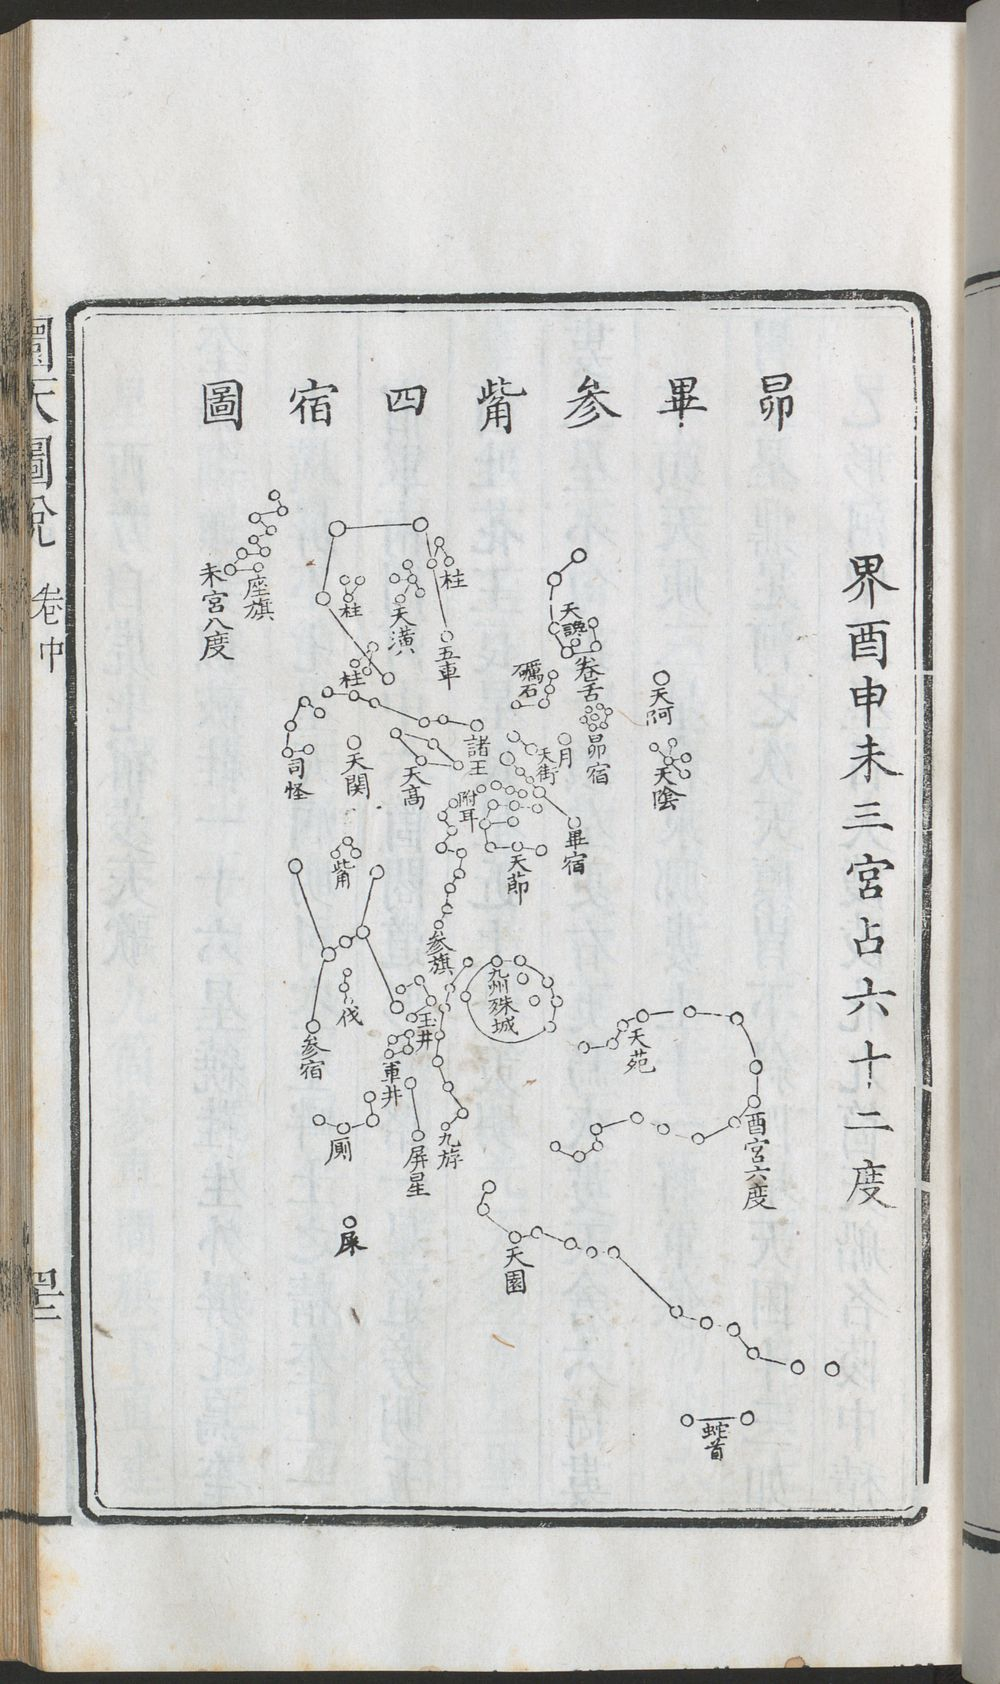 昴畢參觜四宿圖
界酉申未三宮占六十二度
天阿
天陰
卷舌
天讒
昴宿
礪石
月
天街
畢宿
天節
附耳
諸王
天高
五車
柱
天潢
柱
柱
座旗
未宮八度
司怪
天関
觜
參旗
九州殊城
伐
參宿
玉井
軍井
九斿
屏星
厠
屎
天苑
酉宮六度
天園
蛇首
圜天圖說
卷中
四十二